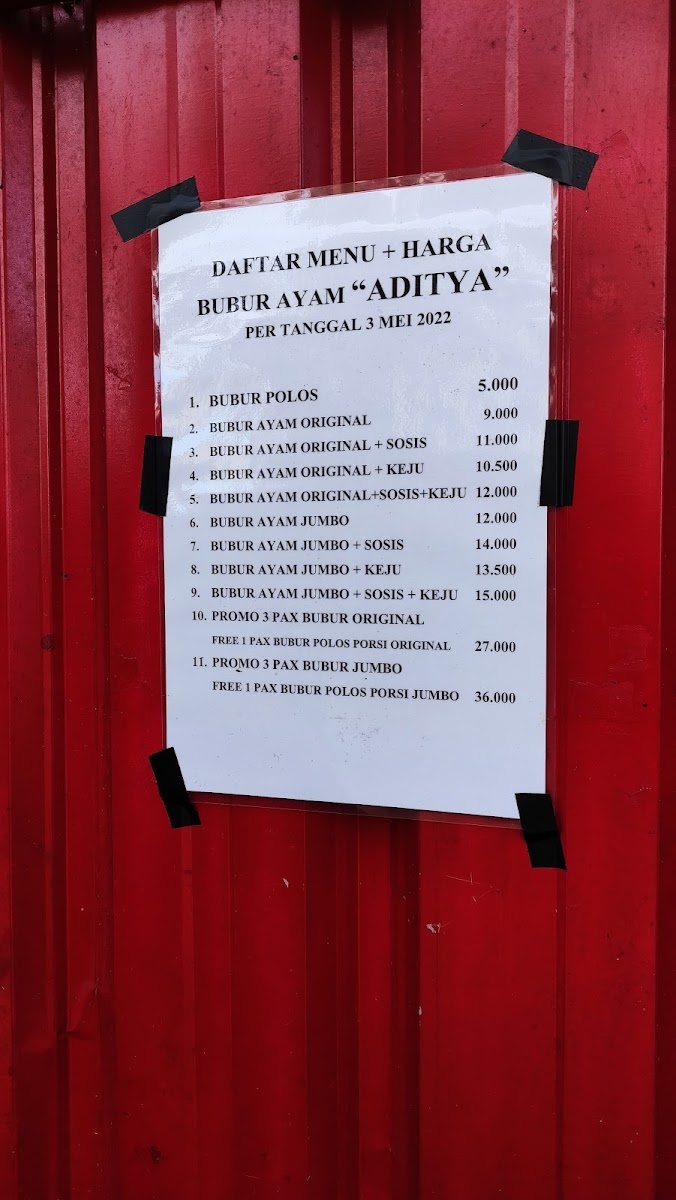 DAFTAR MENU + HARGA
BUBUR AYAM “ADITYA”
PER TANGGAL 3 MEI 2022
1. BUBUR POLOS 5.000
2. BUBUR AYAM ORIGINAL 9.000
3. BUBUR AYAM ORIGINAL + SOSIS 11.000
4. BUBUR AYAM ORIGINAL + KEJU 10.500
5. BUBUR AYAM ORIGINAL+SOSIS+KEJU 12.000
6. BUBUR AYAM JUMBO 12.000
7. BUBUR AYAM JUMBO + SOSIS 14.000
8. BUBUR AYAM JUMBO + KEJU 13.500
9. BUBUR AYAM JUMBO + SOSIS + KEJU 15.000
10. PROMO 3 PAX BUBUR ORIGINAL
FREE 1 PAX BUBUR POLOS PORSI ORIGINAL 27.000
11. PROMO 3 PAX BUBUR JUMBO
FREE 1 PAX BUBUR POLOS PORSI JUMBO 36.000